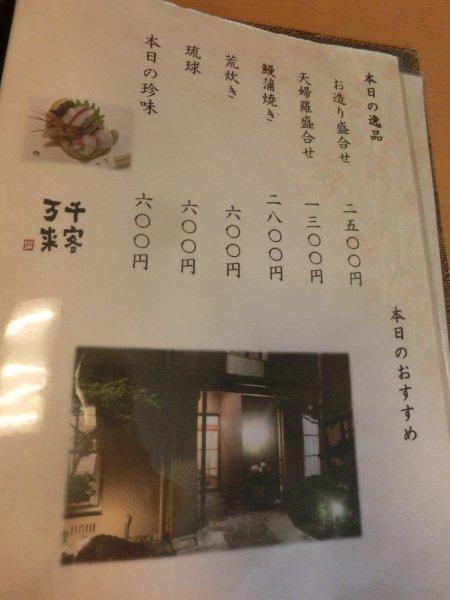 本日のおすすめ
本日の逸品
お造り盛合せ 二五〇〇円
天婦羅盛合せ 一三〇〇円
鰻蒲焼き 二八〇〇円
荒炊き 六〇〇円
琉球 六〇〇円
本日の珍味 六〇〇円
千客
万来